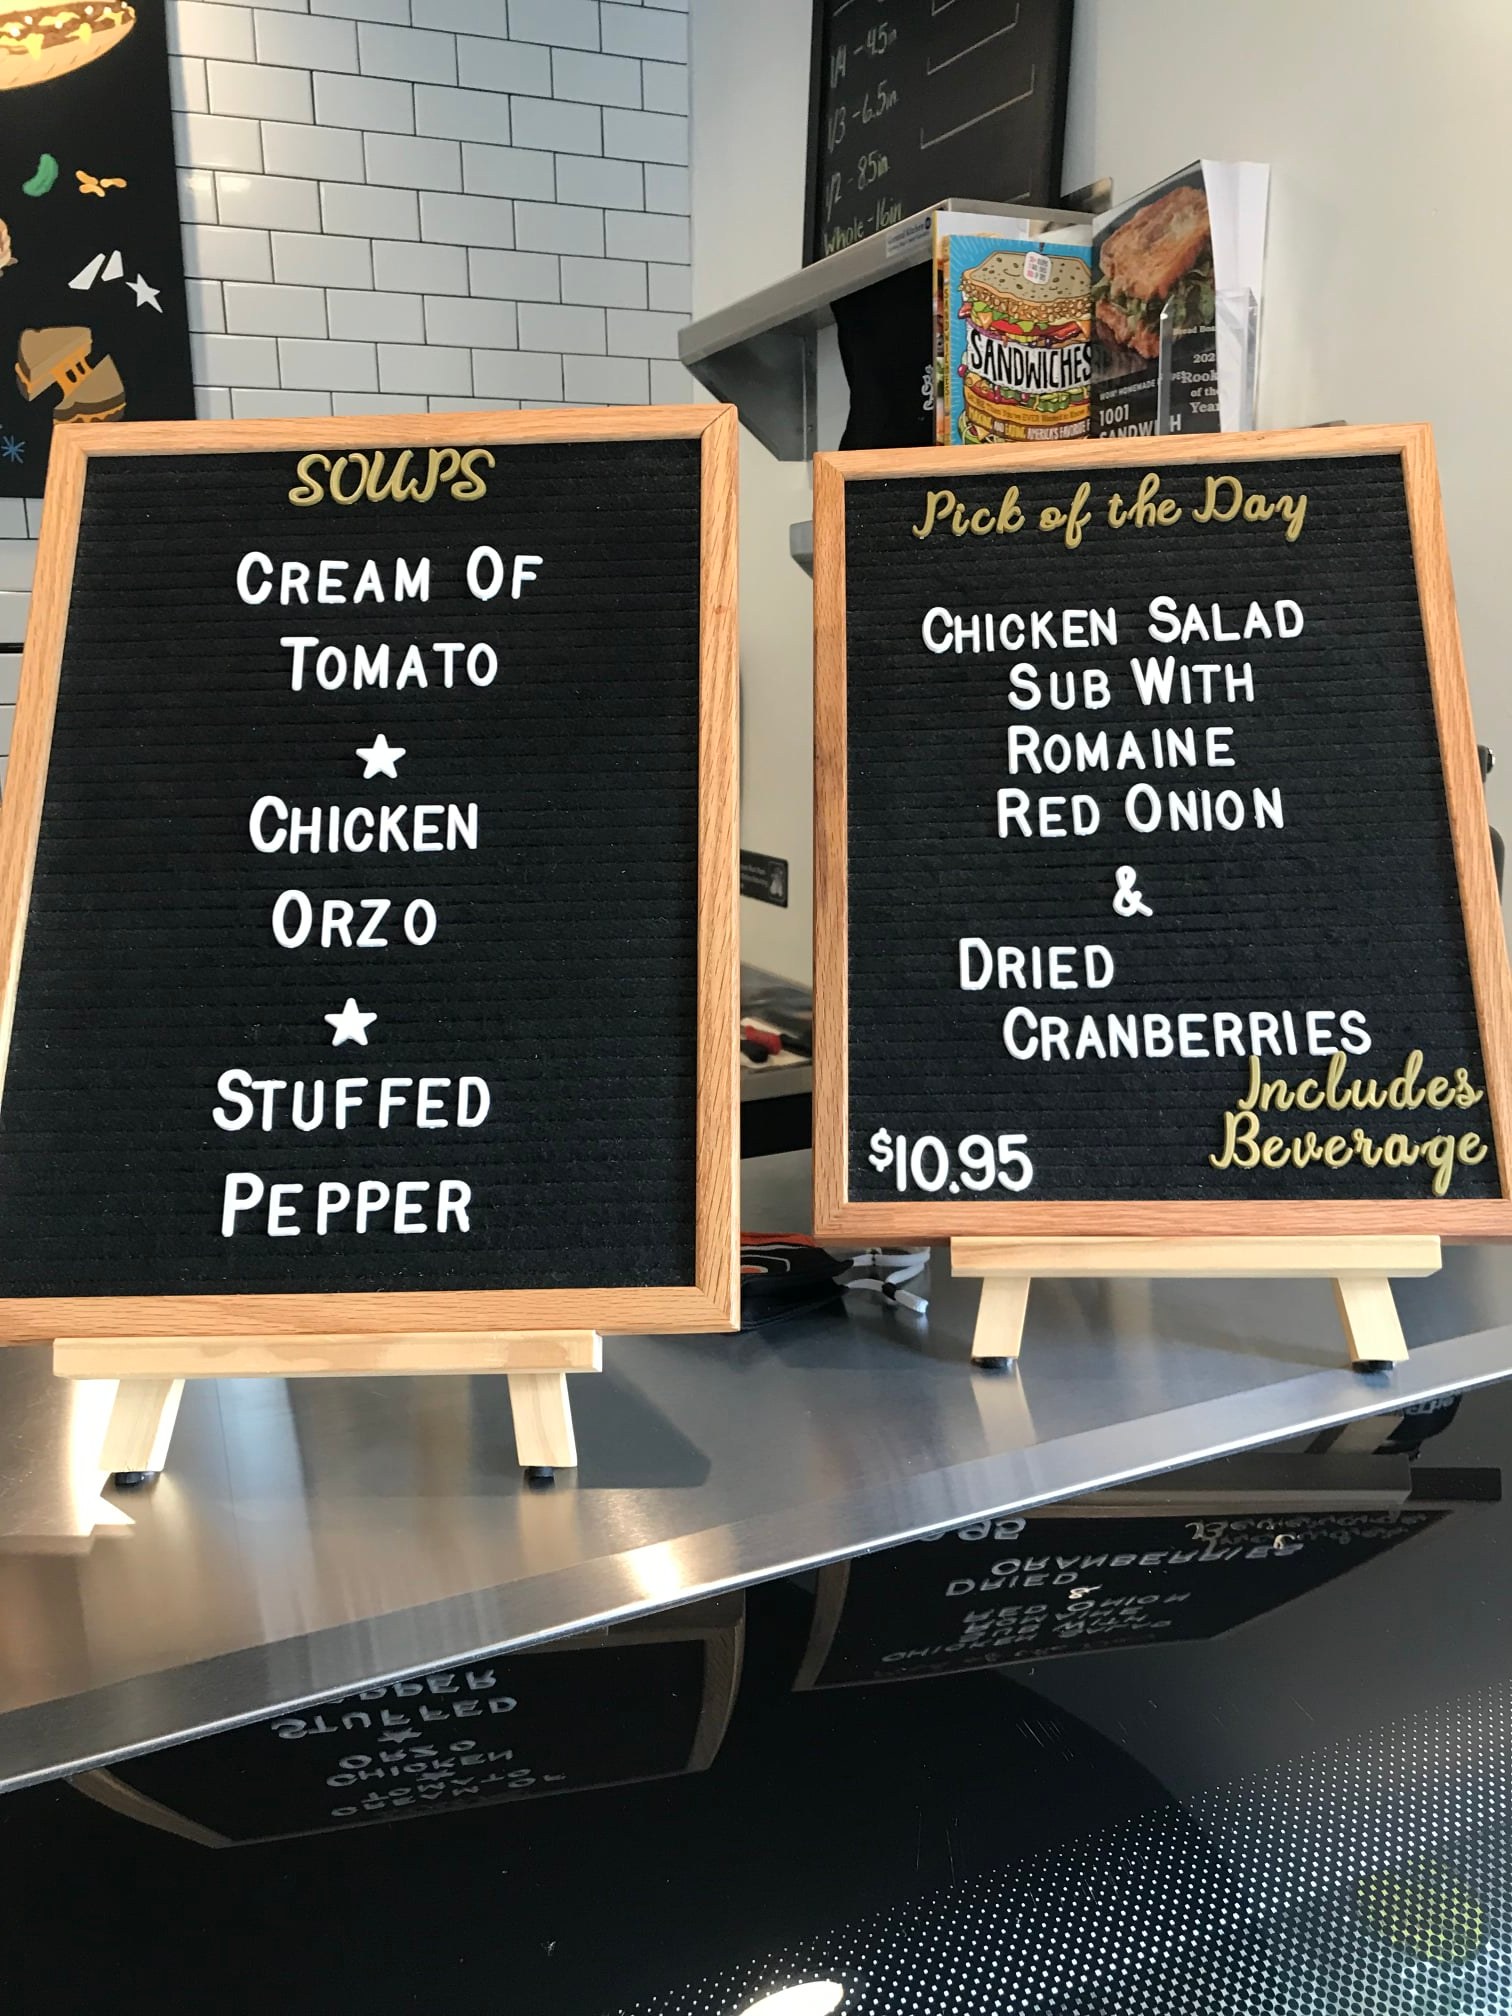 SOUPS
CREAM OF
TOMATO
CHICKEN
ORZO
STUFFED
PEPPER
Pick of the Day
CHICKEN SALAD
SUB WITH
ROMAINE
RED ONION
&
DRIED
CRANBERRIES
Includes
Beverage
$10.95
1/4 - 4.5in
1/3 - 6.5in
1/2 - 8.5in
Whole - 16in
SANDWICHES
1001
Rook
of the
Year